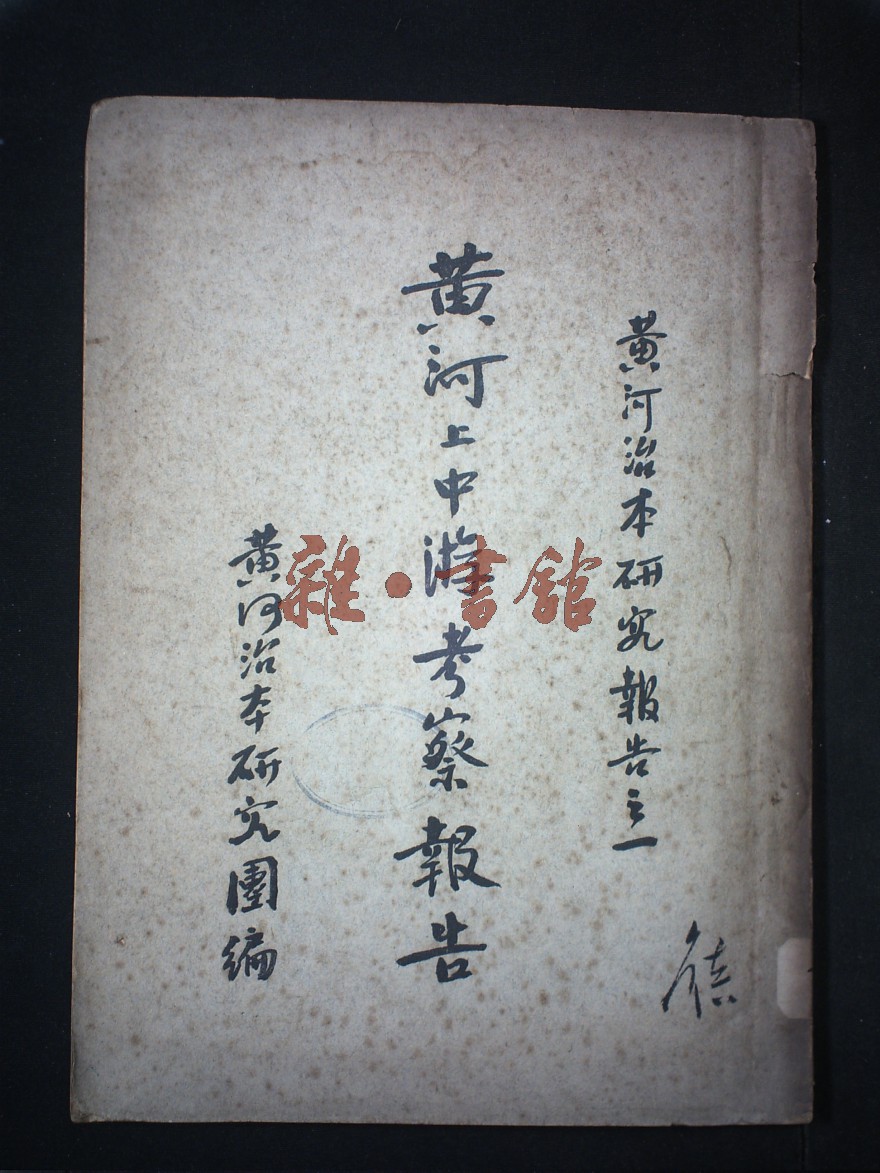 黄河治本研究報告之一
黄河上中游考察報告
黄河治本研究團編
雜·書館